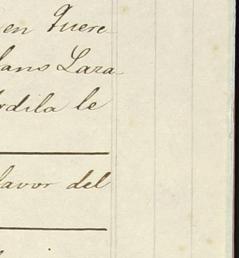 en Quere
lans Lara
rdila le
favor del